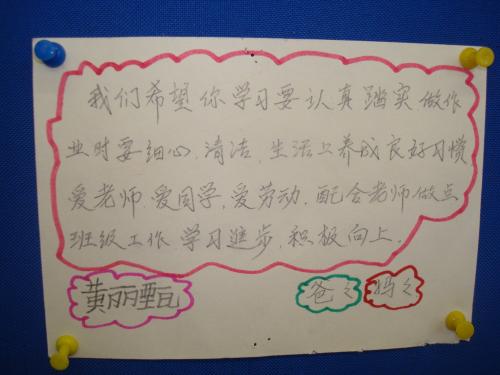 我们希望你学习要认真踏实做作
业时要细心、清洁、生活上养成良好习惯
爱老师、爱同学、爱劳动、配合老师做点
班级工作 学习进步、积极向上.
黄丽甄 爸々 妈々